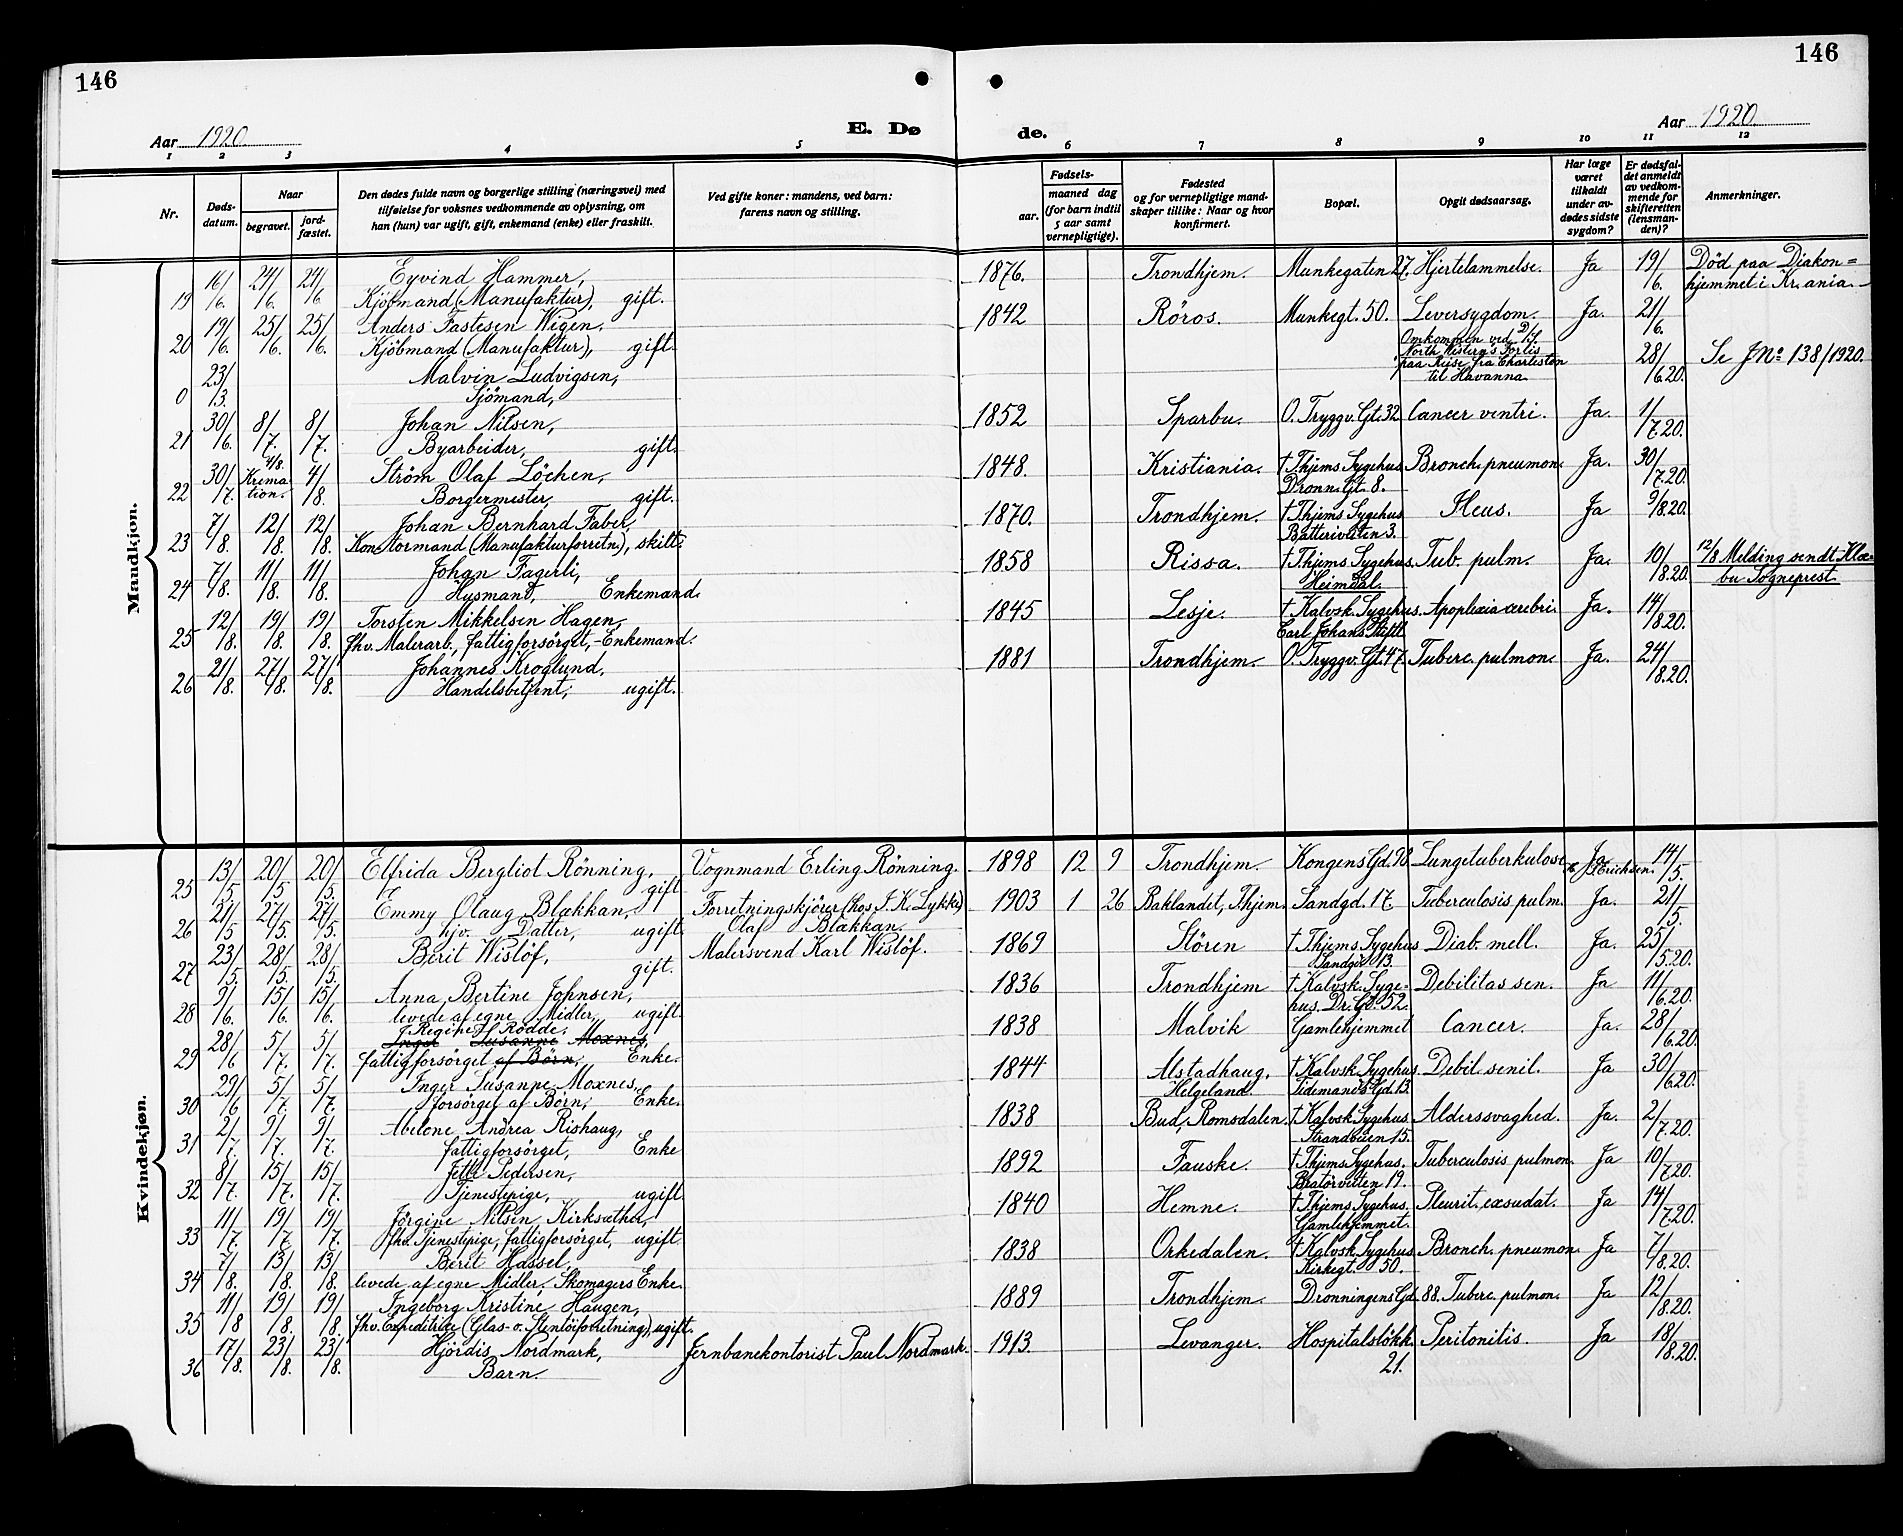 146
146
Aar 1920.
E. Dø
de.
Aar 1920.
1 2 3 4 5 6 7 8 9 10 11 12
Nr.
Døds-
datum.
Naar
begravet.
jord-
fæstet.
Den dødes fulde navn og borgerlige stilling (næringsvei) med
tilføielse for voksnes vedkommende av oplysning, om
han (hun) var ugift, gift, enkemand (enke) eller fraskilt.
Ved gifte koner: mandens, ved barn:
farens navn og stilling.
Fødsels-
aar.
maaned dag
(for barn indtil
5 aar samt
vernepligtige).
Fødested
og for vernepligtige mand-
skaper tillike: Naar og hvor
konfirmert.
Bopæl.
Opgit dødsaarsag.
Har læge
været
tilkaldt
under av-
dødes sidste
sygdom?
Er dødsfal-
det anmeldt
av vedkom-
mende for
skifteretten
(lensman-
den)?
Anmerkninger.
Mandkjøn.
19 16/6. 24/6. 24/6 Eyvind Hammer, 1876. Trondhjem. Munkegaten 27. Hjertelammelse. Ja 19/6. Død paa Diakon=
Kjöbmand (Manufaktur), gift. hjemmet i Kr.ania.
20 19/6. 25/6. 25/6. Anders Fastesen Wigen, 1842 Röros. Munkegt. 50. Leversygdom. Ja. 21/6.
Kjöbmand (Manufaktur), gift.
0 23/3. Malvin Ludvigsen, Omkommen ved D/S. 28/6 20. Se J No 138/1920.
Sjömand, North Western's Forlis
paa Reise fra Charleston
til Havanna
21 30/6. 8/7. 8/7. Johan Nilsen, 1852 Sparbu. O. Tryggv. Gt. 32 Cancer ventri. Ja. 1/7.20.
Byarbeider, gift.
22 30/7. 4/8. Krema-
tion. 4/8. Ström Olaf Löchen, 1848. Kristiania. † Thjems Sygehus Bronch. pneumon. Ja. 30/7.20
Borgermester, gift. Dronn. Gt. 8.
23 7/8. 12/8. 12/8. Johan Bernhard Faber, 1870. Trondhjem. † Thjems Sygehus Ileus. Ja 9/8.20.
Kontormand (Manufakturforretn), skilt. Batteriveiten 3.
24 7/8. 11/8. 11/8. Johan Fagerli, 1858 Rissa. † Thjems Sygehus. Tub. pulm. Ja. 10/8.20. 12/8 Melding sendt Klæ-
Husmand, Enkemand. Heimdal bu Sogneprest.
25 12/8. 19/8. 19/8. Torsten Mikkelsen Hagen, 1845 Lesje. † Kalvsk. Sygehus. Apoplexia cerebri. Ja. 14/8.20.
fhv. Malerarb., fattigforsörget, - Enkemand. Carl Johans Stift.
26 21/8. 27/8. 27/8. Johannes Kroglund, 1881 Trondhjem. O. Tryggv. Gt. 47. Tuberc. pulmon. Ja. 24/8.20.
Handelsbetjent, ugift.
Kvindekjøn.
25 13/5 20/5 20/5. Elfrida Bergliot Rönning, Vognmand Erling Rönning. 1898 12 9 Trondhjem. Kongens Gd. 98. Lungetuberkulose Ja 14/5.
gift Erichsen.
26 21/5 27/5. 27/5. Emmy Olaug Blækkan, Forretningskjörer (hos I. K. Lykke) 1903 1 26 Baklandet, Thjem. Sandgd. 17. Tuberculosis pulm. Ja. 21/5.
hjv. Datter, ugift Olaf Blækkan.
27 23/5. 28/5. 28/5. Berit Wislöf, Malersvend Karl Wislöf. 1869 Stören † Thjems Sygehus Diab. mell. Ja. 25/5.20.
gift. Sandgd. 13.
28 9/6. 15/6. 15/6. Anna Bertine Johnsen, 1836 Trondhjem † Kalvsk. Syge- Debilitas sen. Ja 11/6.20.
levede af egne Midler, ugift. hus. Dr. Gd. 52.
Regine H. Rodde.
29 28/6 5/7. 5/7. Inger Susanne Moxnes, 1838 Malvik Gamlehjemmet Cancer. Ja. 28/6.20.
fattigforsörget af Börn, Enke.
30 29/6 5/7. 5/7. Inger Susanne Moxnes, 1844 Alstadhaug, † Kalvsk. Sygehus. Debil. senil. Ja 30/6.20.
forsörget af Börn, Enke. Helgeland. Tidemands Gd. 13.
31 2/7. 9/7. 9/7. Abelone Andrea Rishaug, 1838 Bud, Romsdalen. † Kalvsk. Sygehus. Alderssvaghed. Ja. 2/7.20.
fattigforsörget, Enke Strandveien 15.
32 8/7. 15/7. 15/7. Jette Pedersen, 1892 Fauske. † Thjems Sygehus. Tuberculosis pulmon. Ja 10/7.20.
Tjenestepige, ugift Bratörveiten 19.
33 11/7. 19/7. 19/7. Jörgine Nilsen Kirksæther, 1840 Hemne. † Thjems Sygehus. Pleurit. exsudat. Ja 14/7.20.
fhv. Tjenestepige, fattigforsörget, ugift Gamlehjemmet.
34 7/8. 13/8. 13/8. Berit Hassel, 1838 Orkedalen. † Kalvsk. Sygehus Bronch. pneumon. Ja 7/8.20.
levede af egne Midler, Skomagers Enke. Kirkegt. 50.
35 11/8 19/8. 19/8. Ingeborg Kristine Haugen, 1889 Trondhjem. Dronningens Gd. 88. Tuberc. pulmon. Ja 12/8.20.
fhv. Expeditrice (Glas- o. Stentöiforretning), ugift.
36 17/8. 23/8. 23/8. Hjördis Nordmark, Jernbanekontorist Paul Nordmark. 1913 Levanger. Hospitalslökk. Peritonitis. Ja 18/8.20.
Barn. 21.